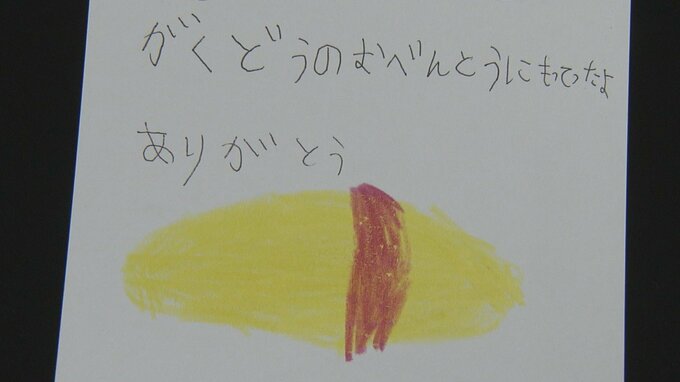 がくどうのおべんとうにもってったよ
ありがとう